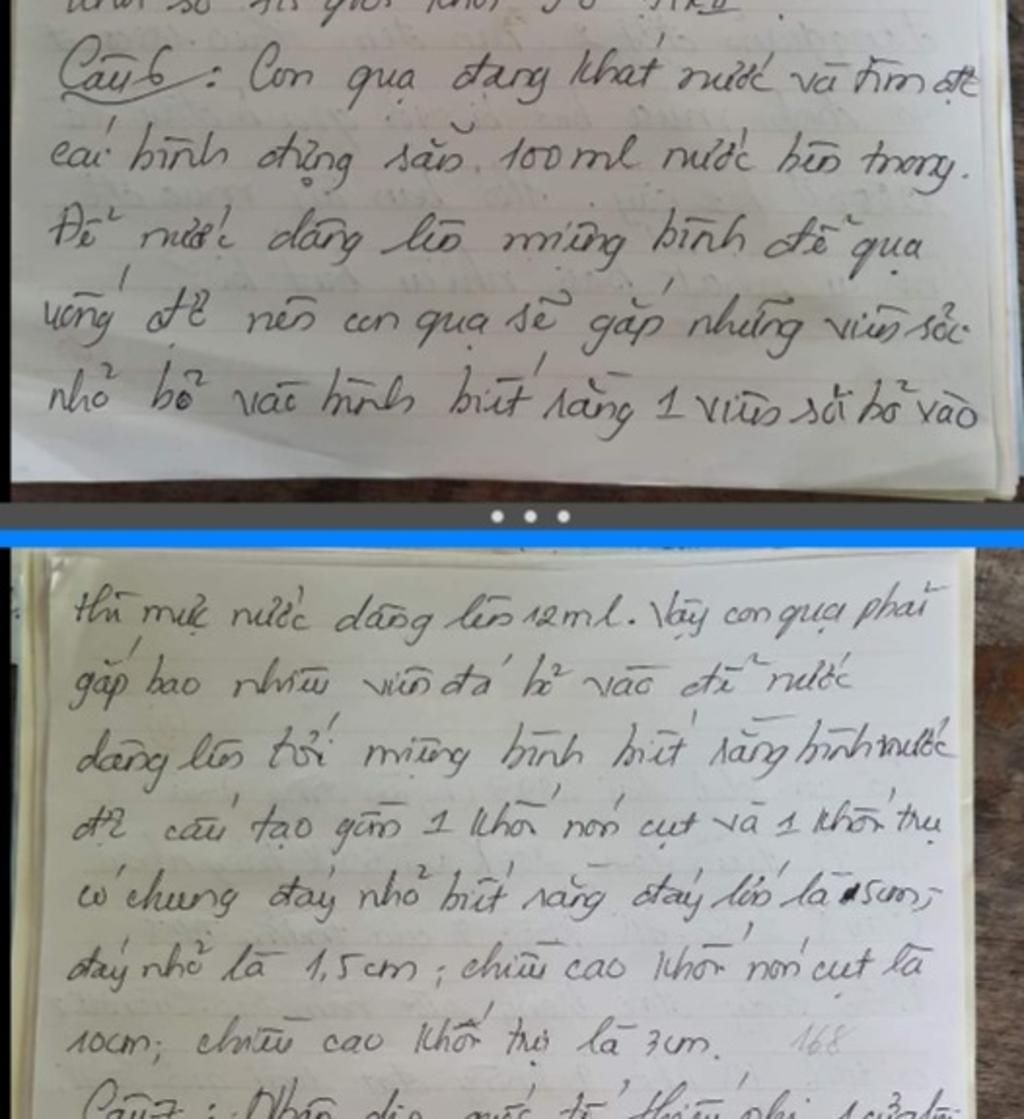 Câu 6: Con quạ đang khát nước và tìm đc
cái bình đựng sẵn 100ml nước bên trong.
Để nước dâng lên miệng bình để quạ
uống đc nên con quạ sẽ gắp những viên sỏi
nhỏ bỏ vào bình biết rằng 1 viên sỏi bỏ vào
thì mực nước dâng lên 12ml. Vậy con quạ phải
gắp bao nhiêu viên đá bỏ vào để nước
dâng lên tới miệng bình biết rằng bình nước
đc cấu tạo gồm 1 khối nón cụt và 1 khối trụ
có chung đáy nhỏ biết rằng đáy lớn là 5cm;
đáy nhỏ là 1,5cm; chiều cao khối nón cụt là
10cm; chiều cao khối trụ là 3cm. 168